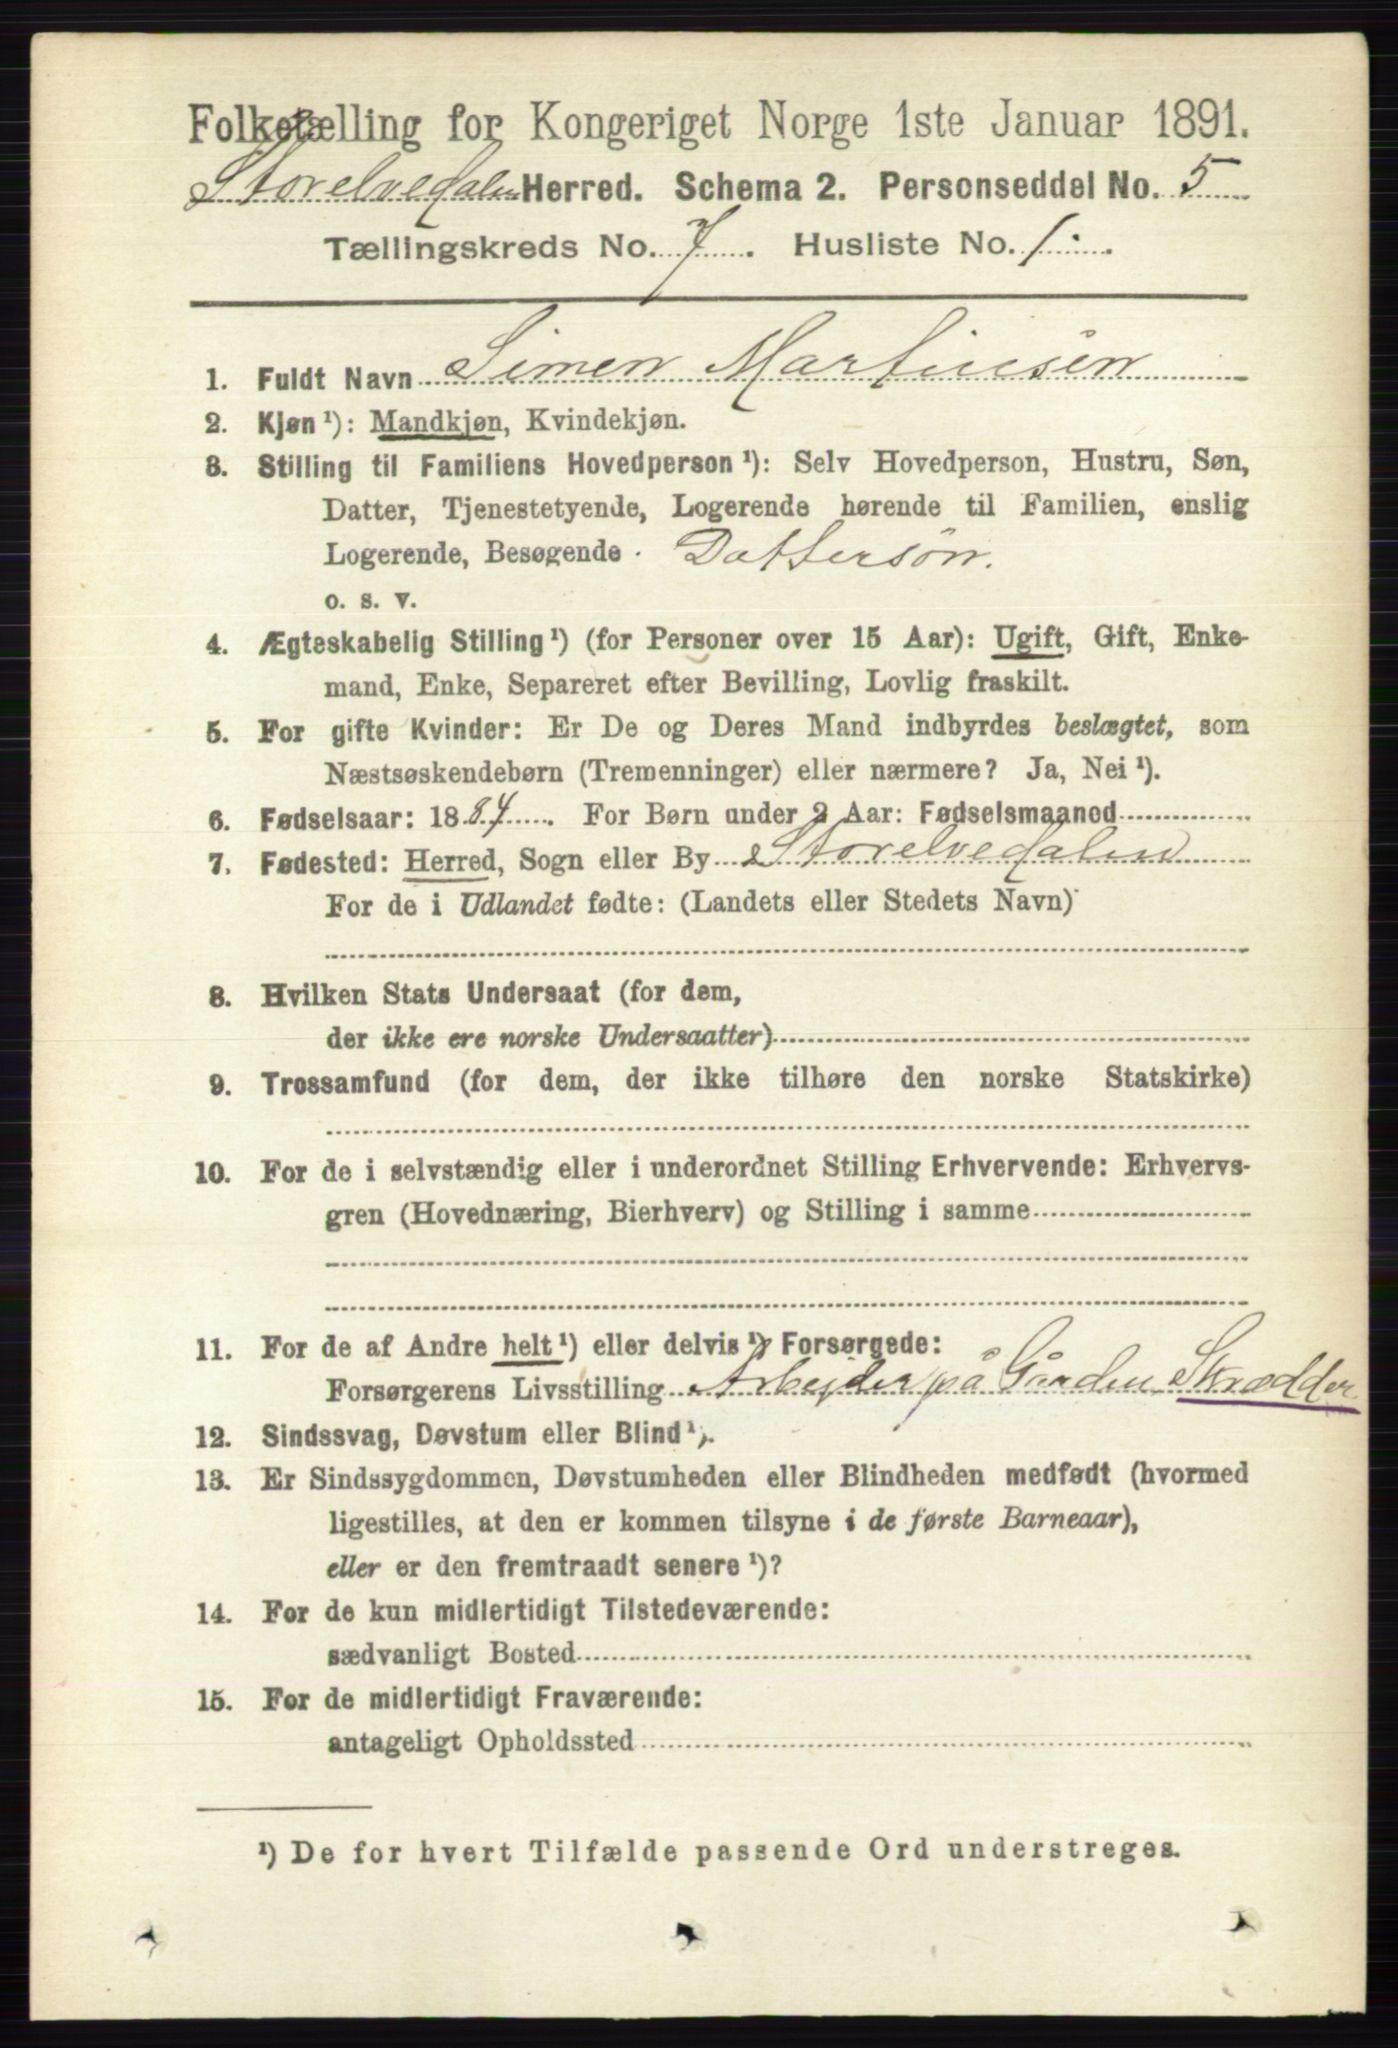 Folketælling for Kongeriget Norge 1ste Januar 1891.
Storelvedalen Herred. Schema 2. Personseddel No. 5
Tællingskreds No. 7. Husliste No. 1.
1. Fuldt Navn Simen Martinsen
2. Kjøn ¹): Mandkjøn, Kvindekjøn.
3. Stilling til Familiens Hovedperson ¹): Selv Hovedperson, Hustru, Søn,
Datter, Tjenestetyende, Logerende hørende til Familien, enslig
Logerende, Besøgende · Dattersøn.
o. s. v.
4. Ægteskabelig Stilling ¹) (for Personer over 15 Aar): Ugift, Gift, Enke-
mand, Enke, Separeret efter Bevilling, Lovlig fraskilt.
5. For gifte Kvinder: Er De og Deres Mand indbyrdes beslægtet, som
Næstsøskendebørn (Tremenninger) eller nærmere? Ja, Nei ¹).
6. Fødselsaar: 1884. For Børn under 2 Aar: Fødselsmaaned
7. Fødested: Herred, Sogn eller By Storelvedalen
For de i Udlandet fødte: (Landets eller Stedets Navn)
8. Hvilken Stats Undersaat (for dem,
der ikke ere norske Undersaatter)
9. Trossamfund (for dem, der ikke tilhøre den norske Statskirke)
10. For de i selvstændig eller i underordnet Stilling Erhvervende: Erhvervs-
gren (Hovednæring, Bierhverv) og Stilling i samme
11. For de af Andre helt ¹) eller delvis ¹) Forsørgede:
Forsørgerens Livsstilling Arbejder på Gården Skrædder
12. Sindssvag, Døvstum eller Blind ¹).
13. Er Sindssygdommen, Døvstumheden eller Blindheden medfødt (hvormed
ligestilles, at den er kommen tilsyne i de første Barneaar),
eller er den fremtraadt senere ¹)?
14. For de kun midlertidigt Tilstedeværende:
sædvanligt Bosted
15. For de midlertidigt Fraværende:
antageligt Opholdssted
¹) De for hvert Tilfælde passende Ord understreges.